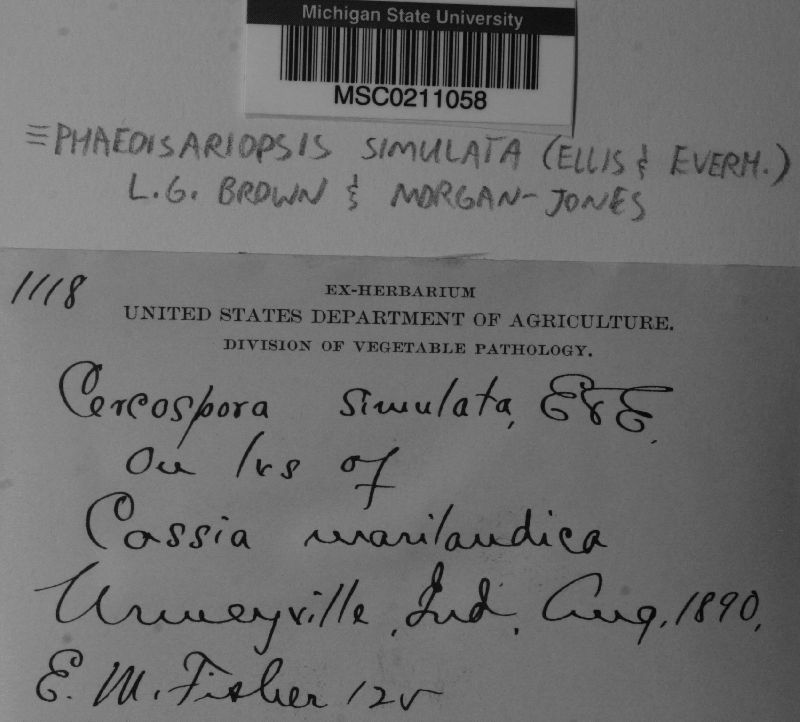 Michigan State University
MSC0211058
≡PHAEOISARIOPSIS SIMULATA (ELLIS & EVERH.)
L.G. BROWN & MORGAN-JONES
1118
EX-HERBARIUM
UNITED STATES DEPARTMENT OF AGRICULTURE.
DIVISION OF VEGETABLE PATHOLOGY.
Cercospora simulata, E&E.
on lvs of
Cassia marilandica
Urmeyville, Ind. Aug. 1890,
E. M. Fisher